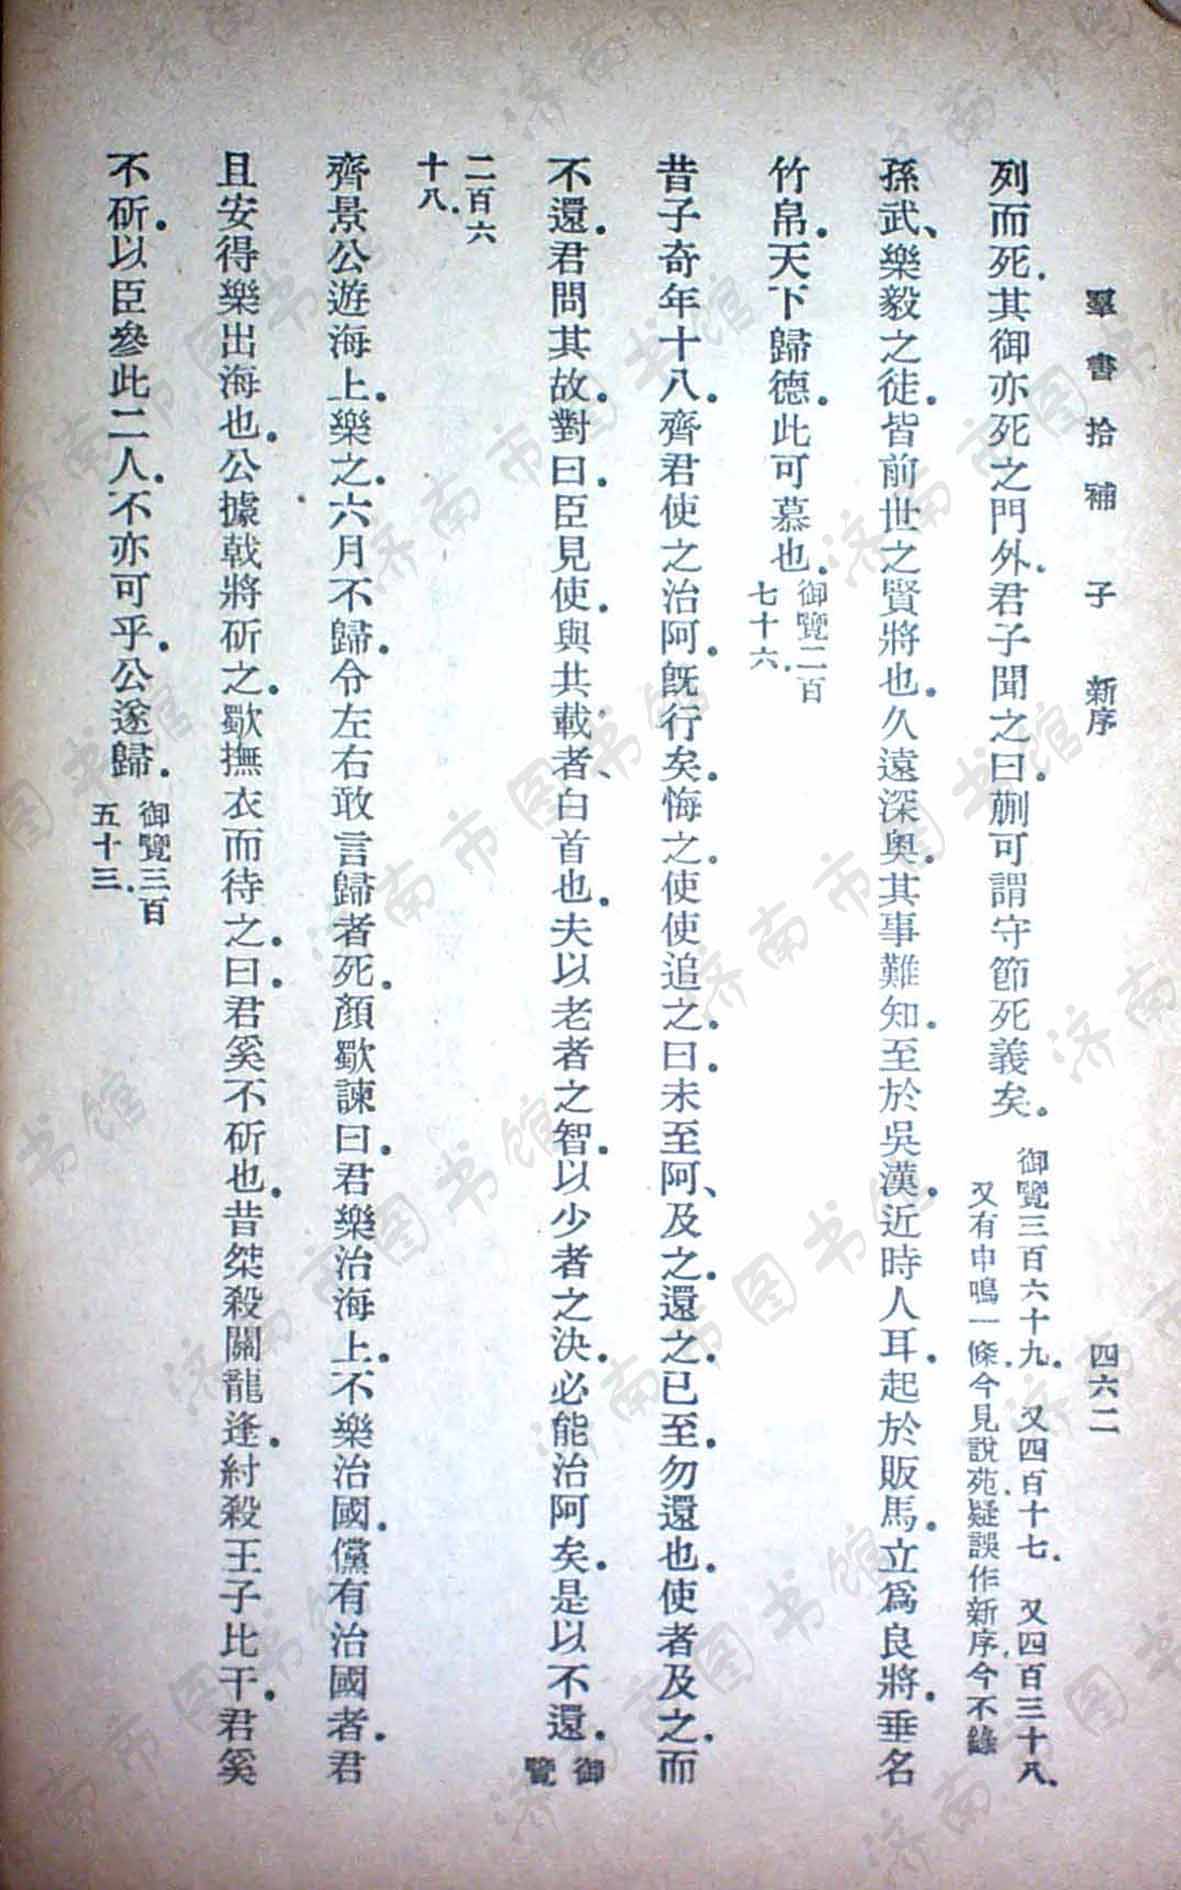 羣書拾補　子　新序　四六二
列而死．其御亦死之門外．君子聞之曰．蒯可謂守節死義矣．御覽三百六十九．又四百十七．又四百三十八．
又有申鳴一條．今見說苑．疑誤作新序．今不錄
孫武、樂毅之徒．皆前世之賢將也．久遠深奧．其事難知．至於吳漢．近時人耳．起於販馬．立爲良將．垂名
竹帛．天下歸德．此可慕也．御覽二百
七十六．
昔子奇年十八．齊君使之治阿．旣行矣．悔之．使使追之．曰．未至阿、及之．還之．已至．勿還也．使者及之．而
不還．君問其故．對曰．臣見使．與共載者、白首也．夫以老者之智．以少者之決．必能治阿矣．是以不還．御
覽
二百六
十八．
齊景公遊海上．樂之．六月不歸．令左右敢言歸者死．顏歜諫曰．君樂治海上．不樂治國．儻有治國者．君
且安得樂出海也．公據戟將斫之．歜撫衣而待之．曰．君奚不斫也．昔桀殺關龍逢．紂殺王子比干．君奚
不斫．以臣參此二人．不亦可乎．公遂歸．御覽三百
五十三．
济南市图书馆